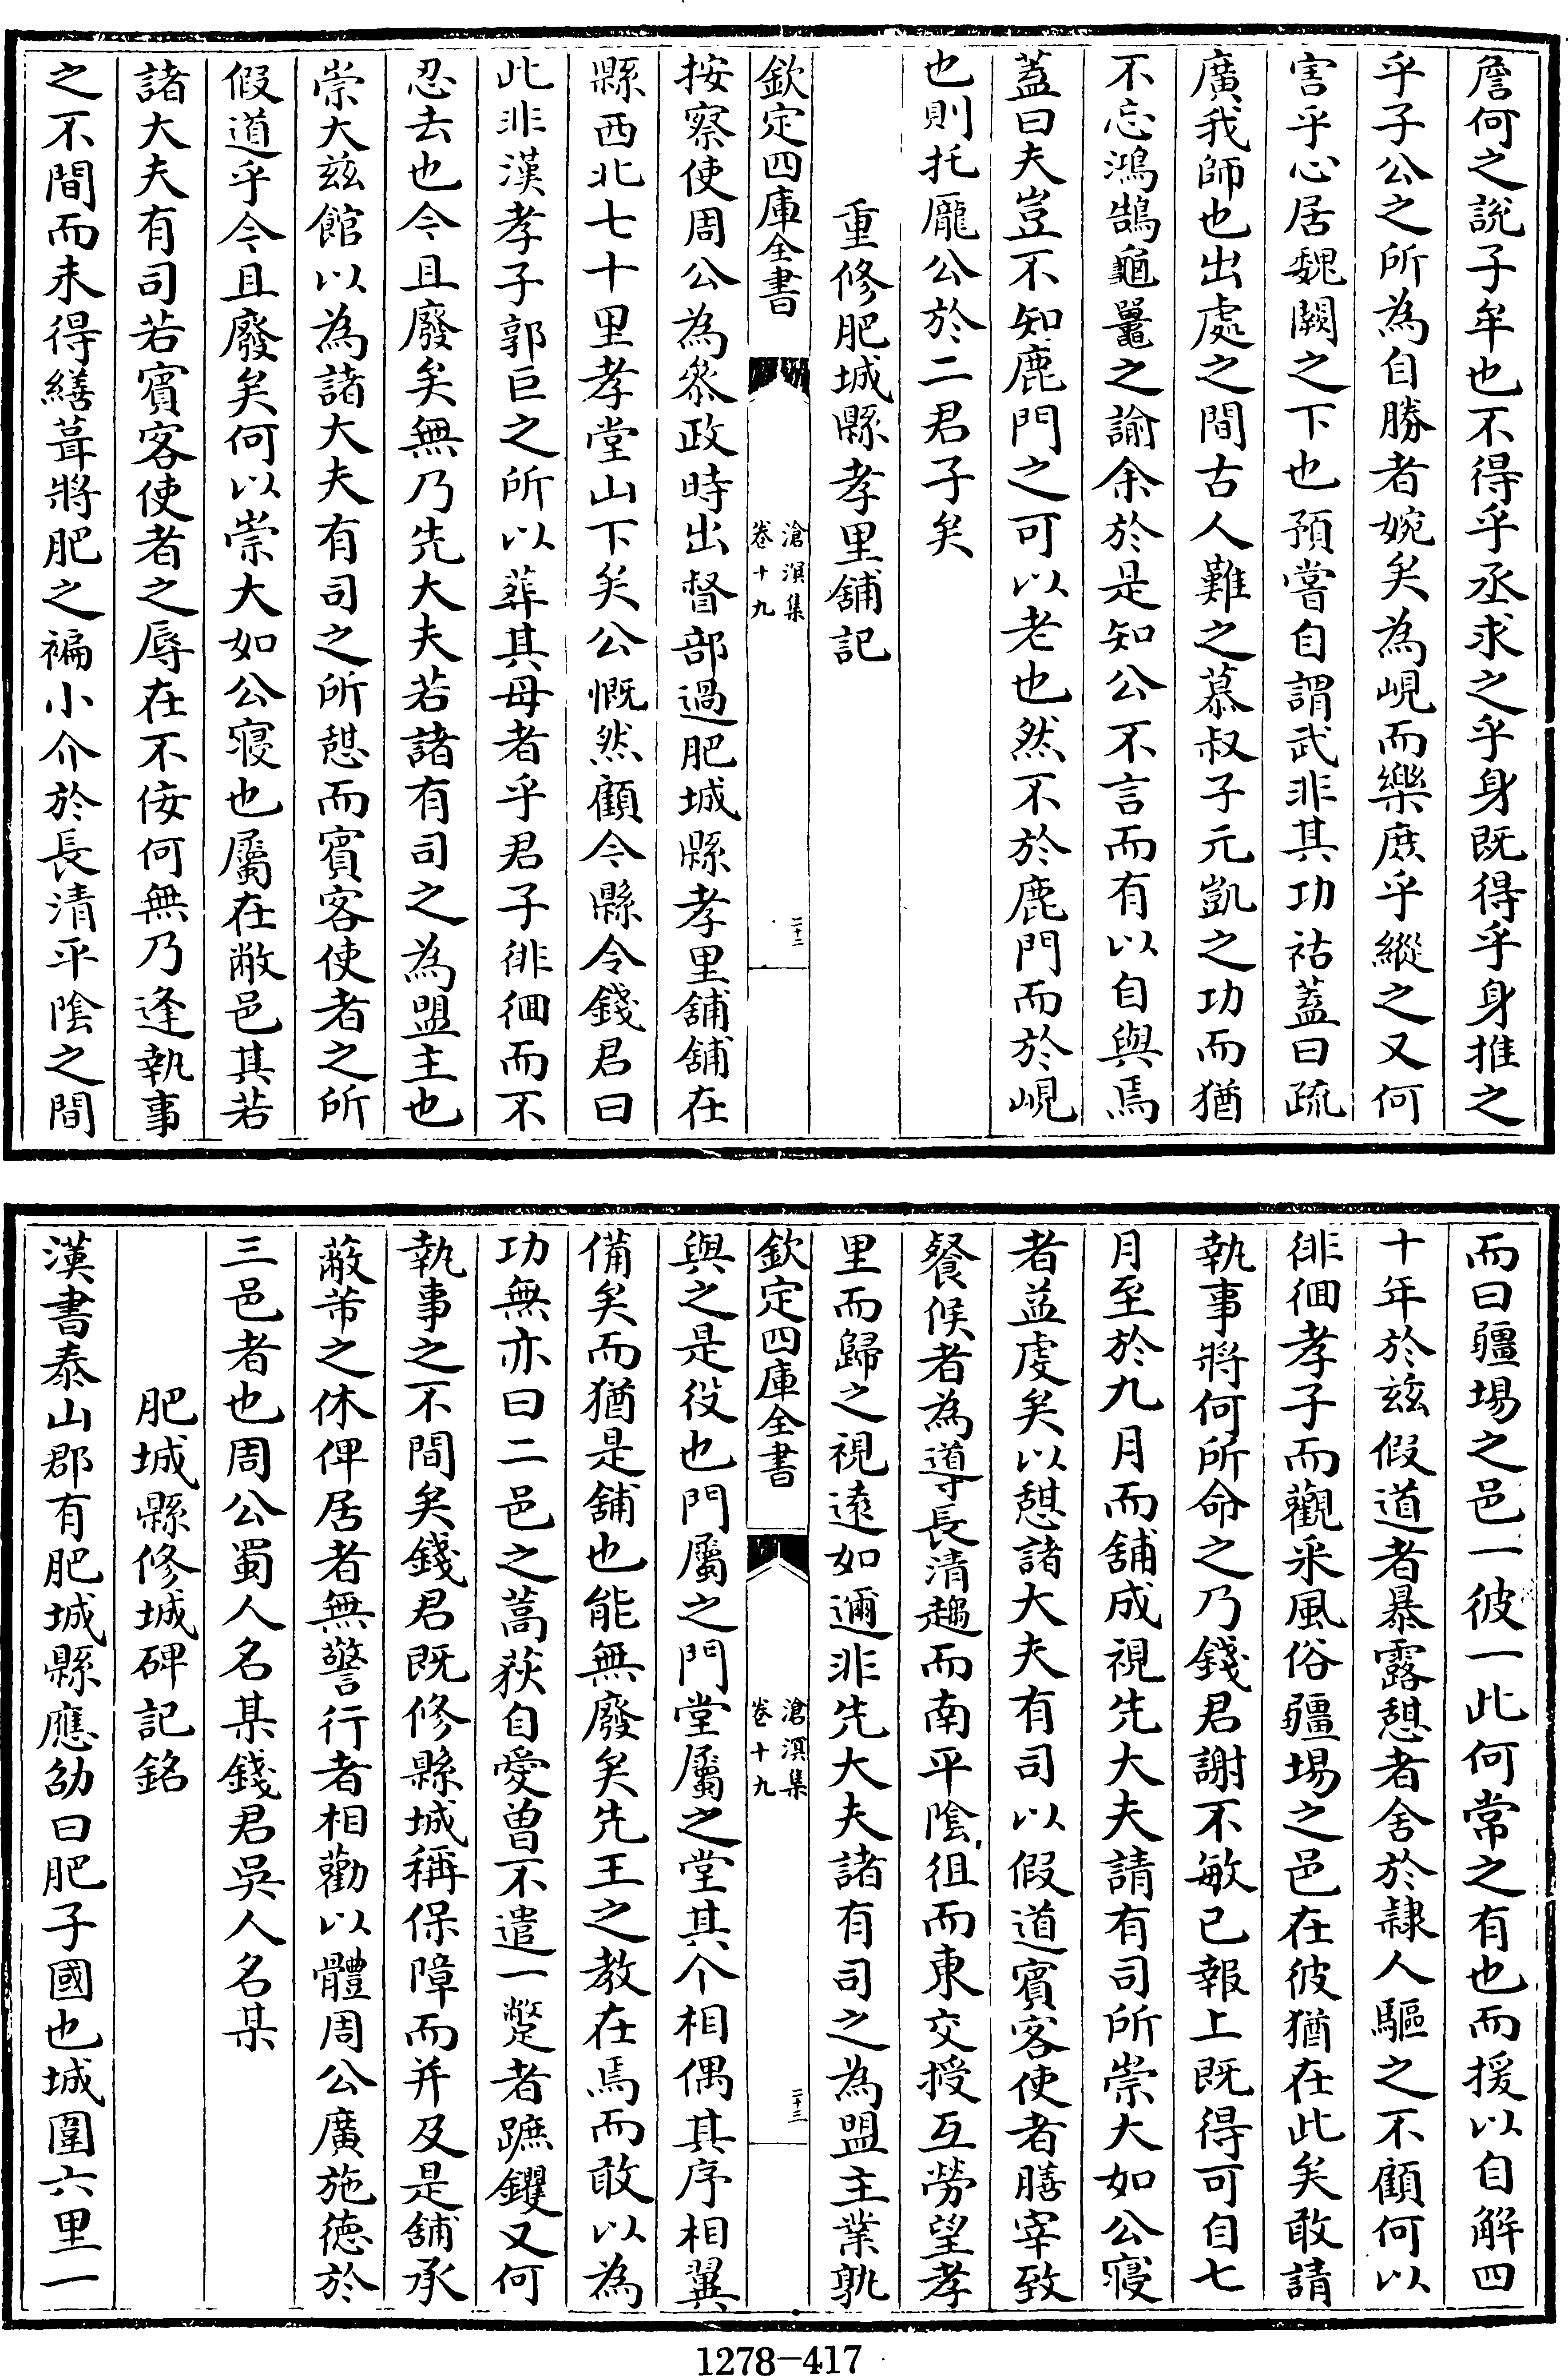 詹何之說子牟也不得乎丞求之乎身既得乎身推之
乎子公之所為自勝者婉矣為峴而樂庶乎縱之又何
害乎心居魏闕之下也預嘗自謂武非其功祜蓋曰疏
廣我師也出處之間古人難之慕叔子元凱之功而猶
不忘鴻鵠龜鼉之諭余於是知公不言而有以自與焉
蓋曰夫豈不知鹿門之可以老也然不於鹿門而於峴
也則托龐公於二君子矣
重修肥城縣孝里舖記
欽定四庫全書
滄溟集
卷十九
二十二
按察使周公為叅政時出督部過肥城縣孝里舖舖在
縣西北七十里孝堂山下矣公慨然顧令縣令錢君曰
此非漢孝子郭巨之所以葬其母者乎君子徘徊而不
忍去也今且廢矣無乃先大夫若諸有司之為盟主也
崇大兹館以為諸大夫有司之所憇而賓客使者之所
假道乎今且廢矣何以崇大如公寢也屬在敝邑其若
諸大夫有司若賓客使者之辱在不佞何無乃逢執事
之不間而未得繕葺將肥之褊小介於長清平陰之間
而曰疆埸之邑一彼一此何常之有也而援以自解四
十年於兹假道者暴露憇者舍於隷人驅之不顧何以
徘徊孝子而觀釆風俗疆埸之邑在彼猶在此矣敢請
執事將何所命之乃錢君謝不敏已報上既得可自七
月至於九月而舖成視先大夫請有司所崇大如公寢
者益虔矣以憇諸大夫有司以假道賓客使者膳宰致
餐候者為導長清趨而南平陰徂而東交授互勞望孝
里而歸之視逺如邇非先大夫諸有司之為盟主業孰
欽定四庫全書
滄溟集
卷十九
二十三
與之是役也門屬之門堂屬之堂其个相偶其序相翼
備矣而猶是舖也能無廢矣先王之教在焉而敢以為
功無亦曰二邑之蒿萩自愛曾不遣一蹩者蹠钁又何
執事之不間矣錢君既修縣城稱保障而并及是舖承
蔽芾之休俾居者無警行者相勸以體周公廣施徳於
三邑者也周公蜀人名某錢君吳人名某
肥城縣修城碑記銘
漢書泰山郡有肥城縣應劭曰肥子國也城圍六里一
1278-417